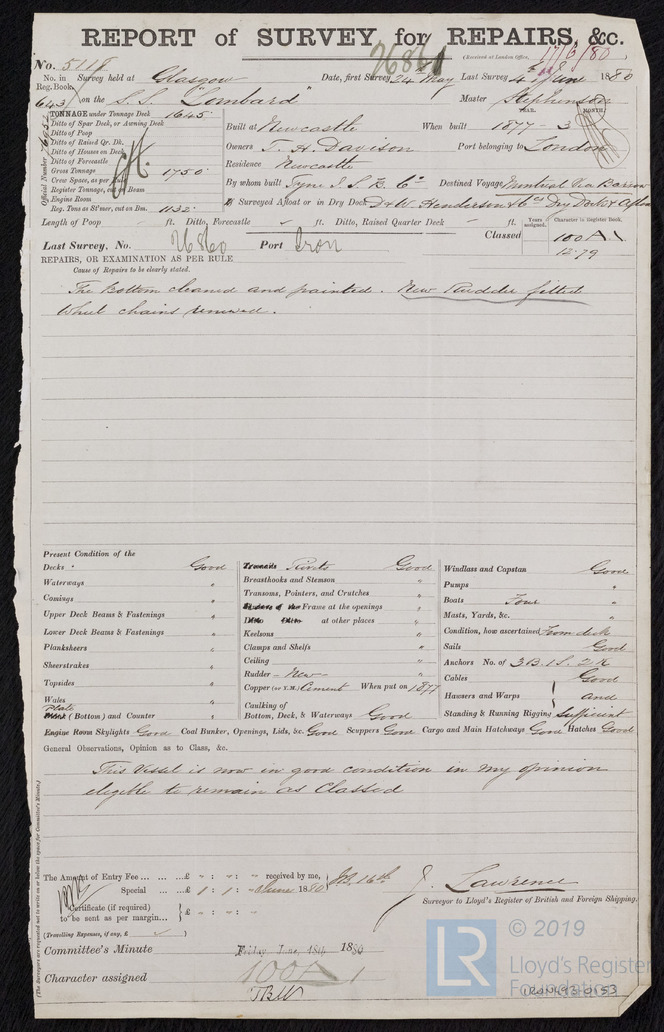 REPORT of SURVEY for REPAIRS, &c.
26860
(Received at London Office, 17/6/80
No. 5118
No. in Reg. Book.
Survey held at Glasgow
Date, first Survey 24th May Last Survey 4th June 1880
643 on the S.S. "Lombard"
Master Stephenson
TONNAGE under Tonnage Deck 1645
Ditto of Spar Deck, or Awning Deck
Ditto of Poop
Ditto of Raised Qr. Dk.
Ditto of Houses on Deck
Ditto of Forecastle
Gross Tonnage 1750
Crew Space, as per Rule
Register Tonnage, cut on Beam
Engine Room
Reg. Tons as St'mer, cut on Bm. 1132
Official Number
YEAR. MONTH.
Built at Newcastle When built 1877 - 3
Owners T. H. Davison Port belonging to London
Residence Newcastle
By whom built Tyne I. S. B. Co Destined Voyage Montreal Via Barrow
If Surveyed Afloat or in Dry Dock D & W. Henderson & Cos Dry Dock & Afloat
Length of Poop ft. Ditto, Forecastle ft. Ditto, Raised Quarter Deck ft.
Years assigned. Character in Register Book.
Classed 100 A 1
12.79
Last Survey, No. 26860 Port Iron
REPAIRS, OR EXAMINATION AS PER RULE
Cause of Repairs to be clearly stated.
The Bottom cleaned and painted. New Rudder fitted
Wheel chains renewed.
Present Condition of the
Decks Good
Waterways "
Comings "
Upper Deck Beams & Fastenings "
Lower Deck Beams & Fastenings "
Planksheers "
Sheerstrakes "
Topsides "
Wales "
Plate (Bottom) and Counter "
Treenails Rivets Good
Breasthooks and Stemson "
Transoms, Pointers, and Crutches "
Frame at the openings "
Ditto Ditto at other places "
Keelsons "
Clamps and Shelfs "
Ceiling "
Rudder - New -
Copper (or Y.M.) Cement When put on 1877
Caulking of
Bottom, Deck, & Waterways Good
Windlass and Capstan Good
Pumps "
Boats Four "
Masts, Yards, &c. "
Condition, how ascertained From deck
Sails Good
Anchors No. of 3 B. 1 S. 2 K
Cables Good
Hawsers and Warps and
Standing & Running Rigging Sufficient
Engine Room Skylights Good Coal Bunker, Openings, Lids, &c. Good Scuppers Good Cargo and Main Hatchways Good Hatches Good
General Observations, Opinion as to Class, &c.
This Vessel is now in good condition in my opinion
eligible to remain as Classed
The Amount of Entry Fee ... £ " : " : " received by me,
Special ... £ 1 : 1 : " June 1880
Certificate (if required) to be sent as per margin... £ " : " : "
(Travelling Expenses, if any, £ )
J. Lawrence
Surveyor to Lloyd's Register of British and Foreign Shipping.
Committee's Minute Friday, June, 18th 1880
Character assigned 100 A 1
TBW
(The Surveyors are requested not to write on or below the space for Committee's Minute.)
LR
© 2019
Lloyd's Register
Foundation
IRON493-0153